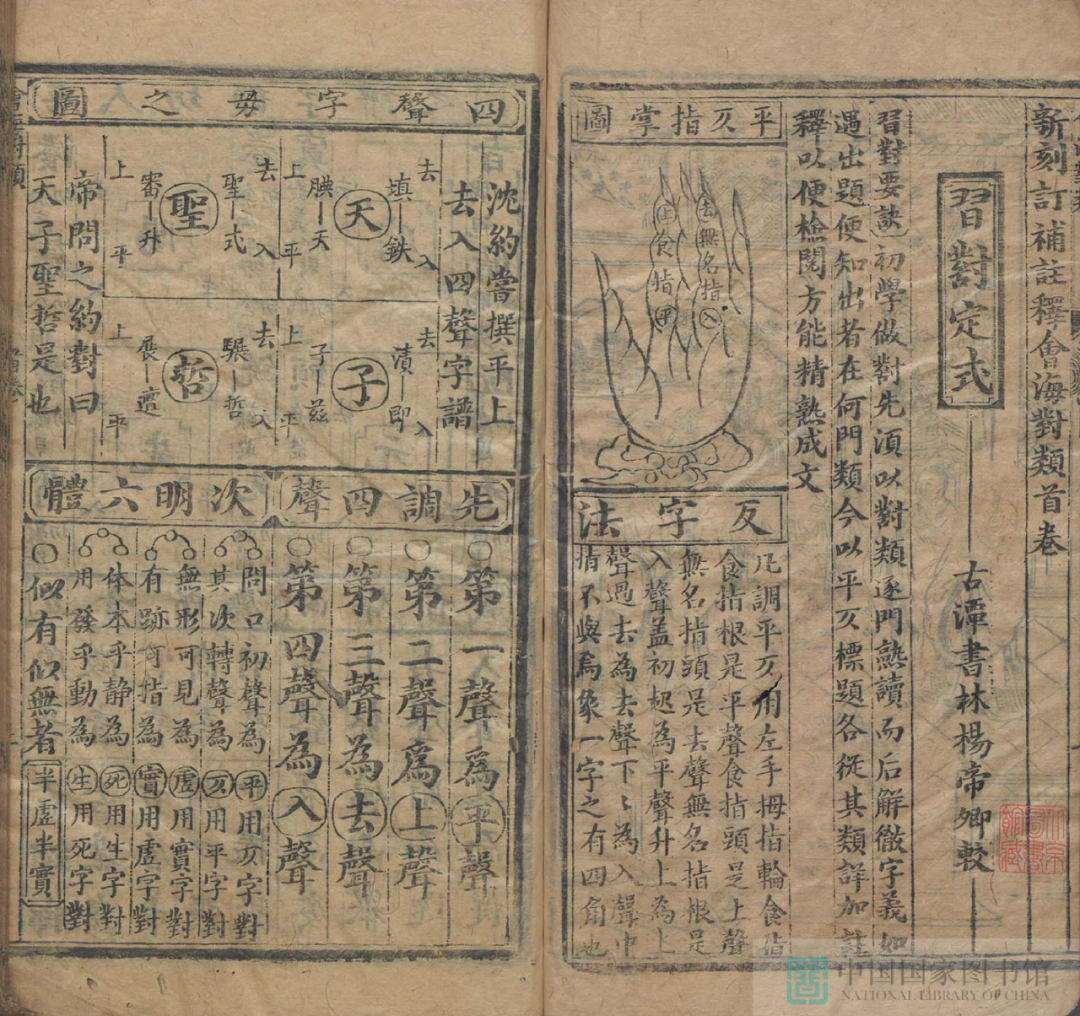 新刻訂補註釋會海對類首卷
習對定式
古潭書林楊帝卿較
習對要訣初學做對先湏以對類逐門熟讀而后解徹字義如
遇出題便知出者在何門類今以平仄標題各從其類詳加註
釋以便檢閱方能精熟成文
平仄指掌圖
去無名指入
上食指平
反字法
凡調平仄用左手拇指輪食指
食指根是平聲食指頭是上聲
無名指頭是去聲無名指根是
入聲蓋初起為平聲升上為上
聲過去為去聲下〻為入聲中
指不與焉象一字之有四角也
四聲字母之圖
沈約嘗撰平上
去入四聲字譜
去 填 鉄 入
天
上 腆 天 平
去 聖 式 入
聖
上 審 升 平
去 漬 即 入
子
上 子 茲 平
去 驏 哲 入
哲
上 展 邅 平
帝問之約對曰
天子聖哲是也
先調四聲
○第一聲爲平聲
○第二聲爲上聲
○第三聲為去聲
○第四聲為入聲
次明六體
問口初聲為平用仄字對
其次轉聲為仄用平字對
無形可見為虛用實字對
有跡可指為實用虛字對
体本乎静為死用生字對
用發乎動為生用死字對
○似有似無者半虛半實
中国国家图书馆
NATIONAL LIBRARY OF CHINA